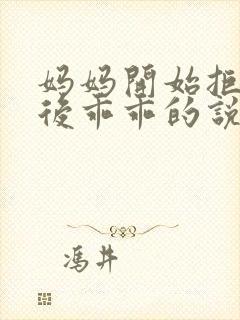 妈妈開始拒
後乖乖的說
馮井